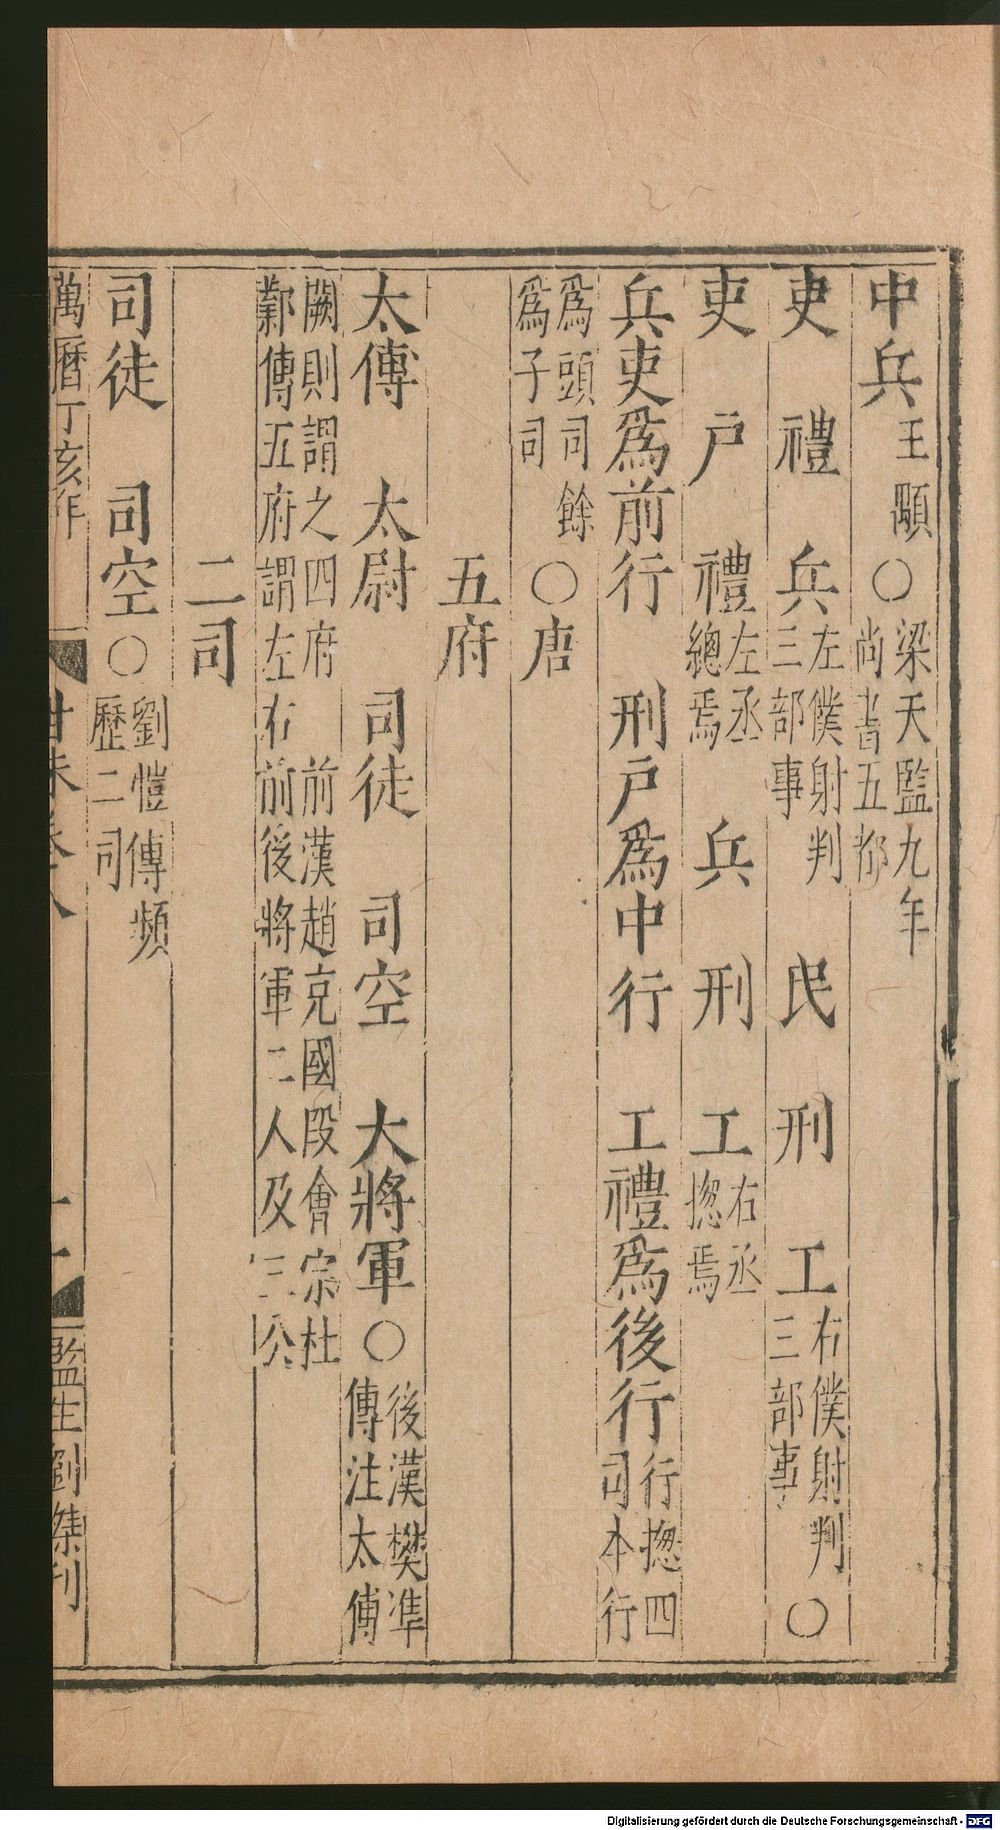 中兵王顒○梁天監九年尚書五都
吏 禮 兵左僕射判三部事 民 刑 工右僕射判三部事○
吏 戶 禮左丞總焉 兵 刑 工右丞揔焉
兵吏爲前行 刑戶爲中行 工禮爲後行行揔四司本行
爲頭司餘爲子司○唐
五府
太傅 太尉 司徒 司空 大將軍○後漢樊準傳注太傅
闕則謂之四府 前漢趙充國段會宗杜鄴傳五府謂左右前後將軍二人及三公
二司
司徒 司空○劉愷傳頻歷二司
萬曆丁亥年 卷八 監生劉傑刊
Digitalisierung gefördert durch die Deutsche Forschungsgemeinschaft - DFG